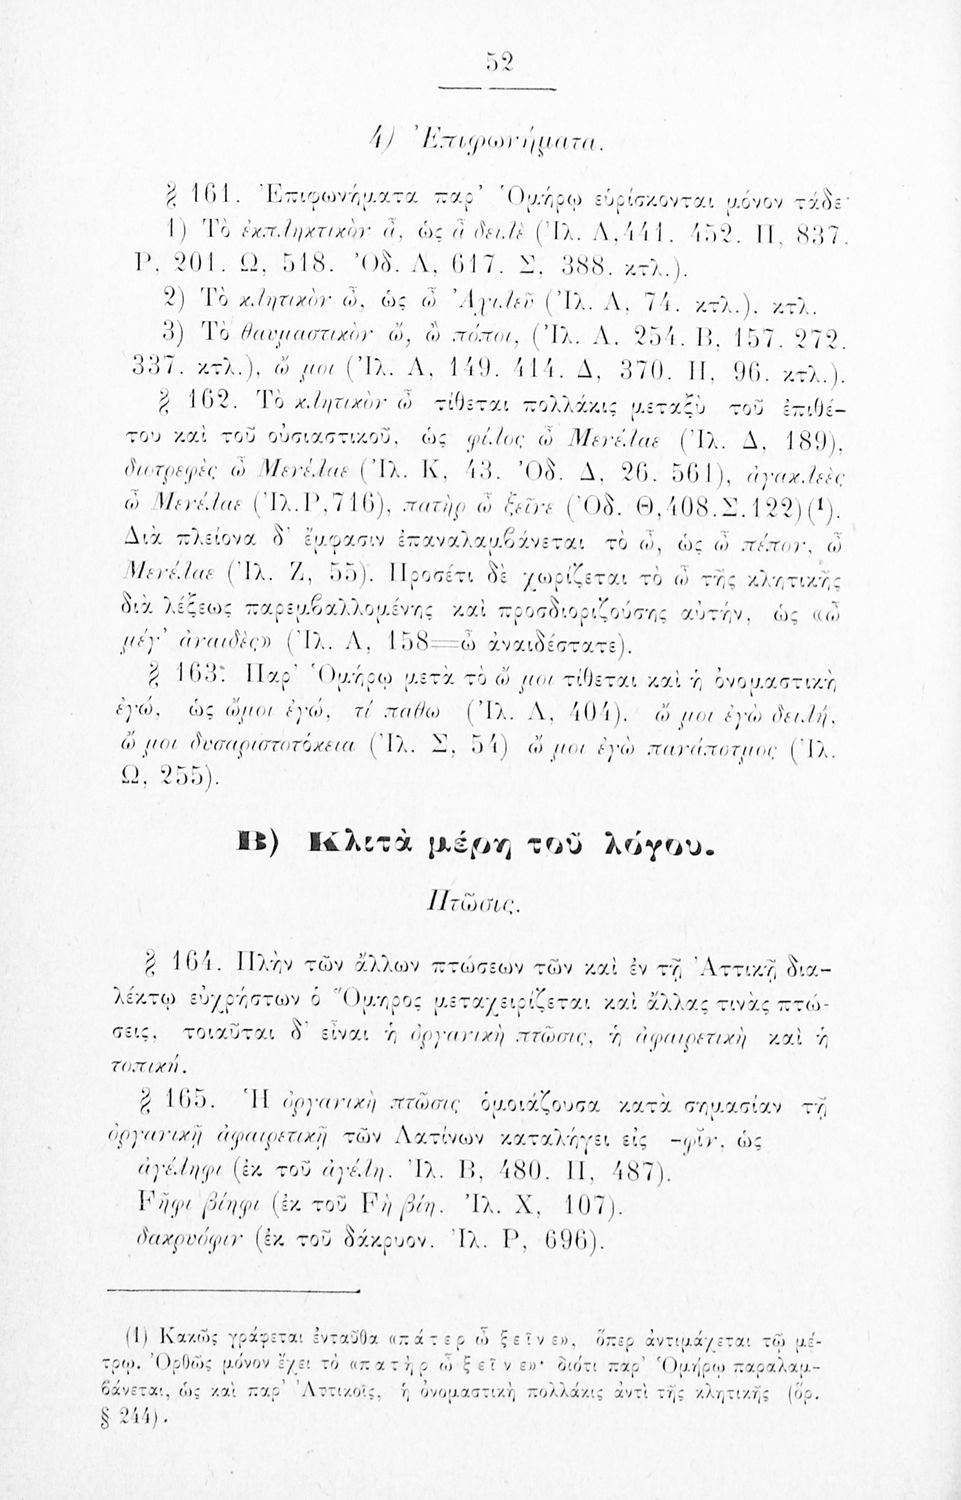 52
4) Ἐπιφωνήματα.
§ 161. Ἐπιφωνήματα παρ' Ὁμήρῳ εὑρίσκονται μόνον τάδε·
1) Τὸ ἐκπληκτικὸν ἆ, ὡς ἆ δειλὲ (Ἰλ. Λ, 441. 452. Π, 837.
Ρ, 201. Ω, 518. Ὀδ. Λ, 617. Σ, 388. κτλ.).
2) Τὸ κλητικὸν ὦ, ὡς ὦ Ἀχιλεῦ (Ἰλ. Α, 74. κτλ.). κτλ.
3) Τὸ θαυμαστικὸν ὤ, ὢ πόποι, (Ἰλ. Α, 254. Β, 157. 272.
337. κτλ.), ὤ μοι (Ἰλ. Α, 149. 414. Δ, 370. Π, 96. κτλ.).
§ 162. Τὸ κλητικὸν ὦ τίθεται πολλάκις μεταξὺ τοῦ ἐπιθέ-
του καὶ τοῦ οὐσιαστικοῦ, ὡς φίλος ὦ Μενέλαε (Ἰλ. Δ, 189),
διοτρεφὲς ὦ Μενέλαε (Ἰλ. Κ, 43. Ὀδ. Δ, 26. 561), ἀγακλεὲς
ὦ Μενέλαε (Ἰλ.Ρ,716), πατὴρ ὦ ξεῖνε (Ὀδ. Θ,408.Σ.122)(¹).
Διὰ πλείονα δ' ἔμφασιν ἐπαναλαμβάνεται τὸ ὦ, ὡς ὦ πέπον, ὦ
Μενέλαε (Ἰλ. Ζ, 55). Προσέτι δὲ χωρίζεται τὸ ὦ τῆς κλητικῆς
διὰ λέξεως παρεμβαλλομένης καὶ προσδιοριζούσης αὐτήν, ὡς «ὦ
μέγ' ἀναιδὲς» (Ἰλ. Α, 158=ὦ ἀναιδέστατε).
§ 163· Παρ' Ὁμήρῳ μετὰ τὸ ὤ μοι τίθεται καὶ ἡ ὀνομαστικὴ
ἐγώ, ὡς ὤμοι ἐγώ, τί παθω (Ἰλ. Λ, 404). ὤ μοι ἐγὼ δειλή,
ὤ μοι δυσαριστοτόκεια (Ἰλ. Σ, 54) ὤ μοι ἐγὼ πανάποτμος (Ἰλ.
Ω, 255).
Β) Κλιτὰ μέρη τοῦ λόγου.
Πτῶσις.
§ 164. Πλὴν τῶν ἄλλων πτώσεων τῶν καὶ ἐν τῇ Ἀττικῇ δια-
λέκτῳ εὐχρήστων ὁ Ὅμηρος μεταχειρίζεται καὶ ἄλλας τινὰς πτώ-
σεις, τοιαῦται δ' εἶναι ἡ ὀργανικὴ πτῶσις, ἡ ἀφαιρετικὴ καὶ ἡ
τοπική.
§ 165. Ἡ ὀργανικὴ πτῶσις ὁμοιάζουσα κατὰ σημασίαν τῇ
ὀργανικῇ ἀφαιρετικῇ τῶν Λατίνων καταλήγει εἰς -φῖν, ὡς
ἀγέληφι (ἐκ τοῦ ἀγέλη. Ἰλ. Β, 480. Π, 487).
Fῆφι βίηφι (ἐκ τοῦ Fὴ βίη. Ἰλ. Χ, 107).
δακρυόφιν (ἐκ τοῦ δάκρυον. Ἰλ. Ρ, 696).
(1) Κακῶς γράφεται ἐνταῦθα «πάτερ ὦ ξεῖνε», ὅπερ ἀντιμάχεται τῷ μέ-
τρῳ. Ὀρθῶς μόνον ἔχει τὸ «πατὴρ ὦ ξεῖνε»· διότι παρ' Ὁμήρῳ παραλαμ-
βάνεται, ὡς καὶ παρ' Ἀττικοῖς, ἡ ὀνομαστικὴ πολλάκις ἀντὶ τῆς κλητικῆς (ὅρ.
§ 244).